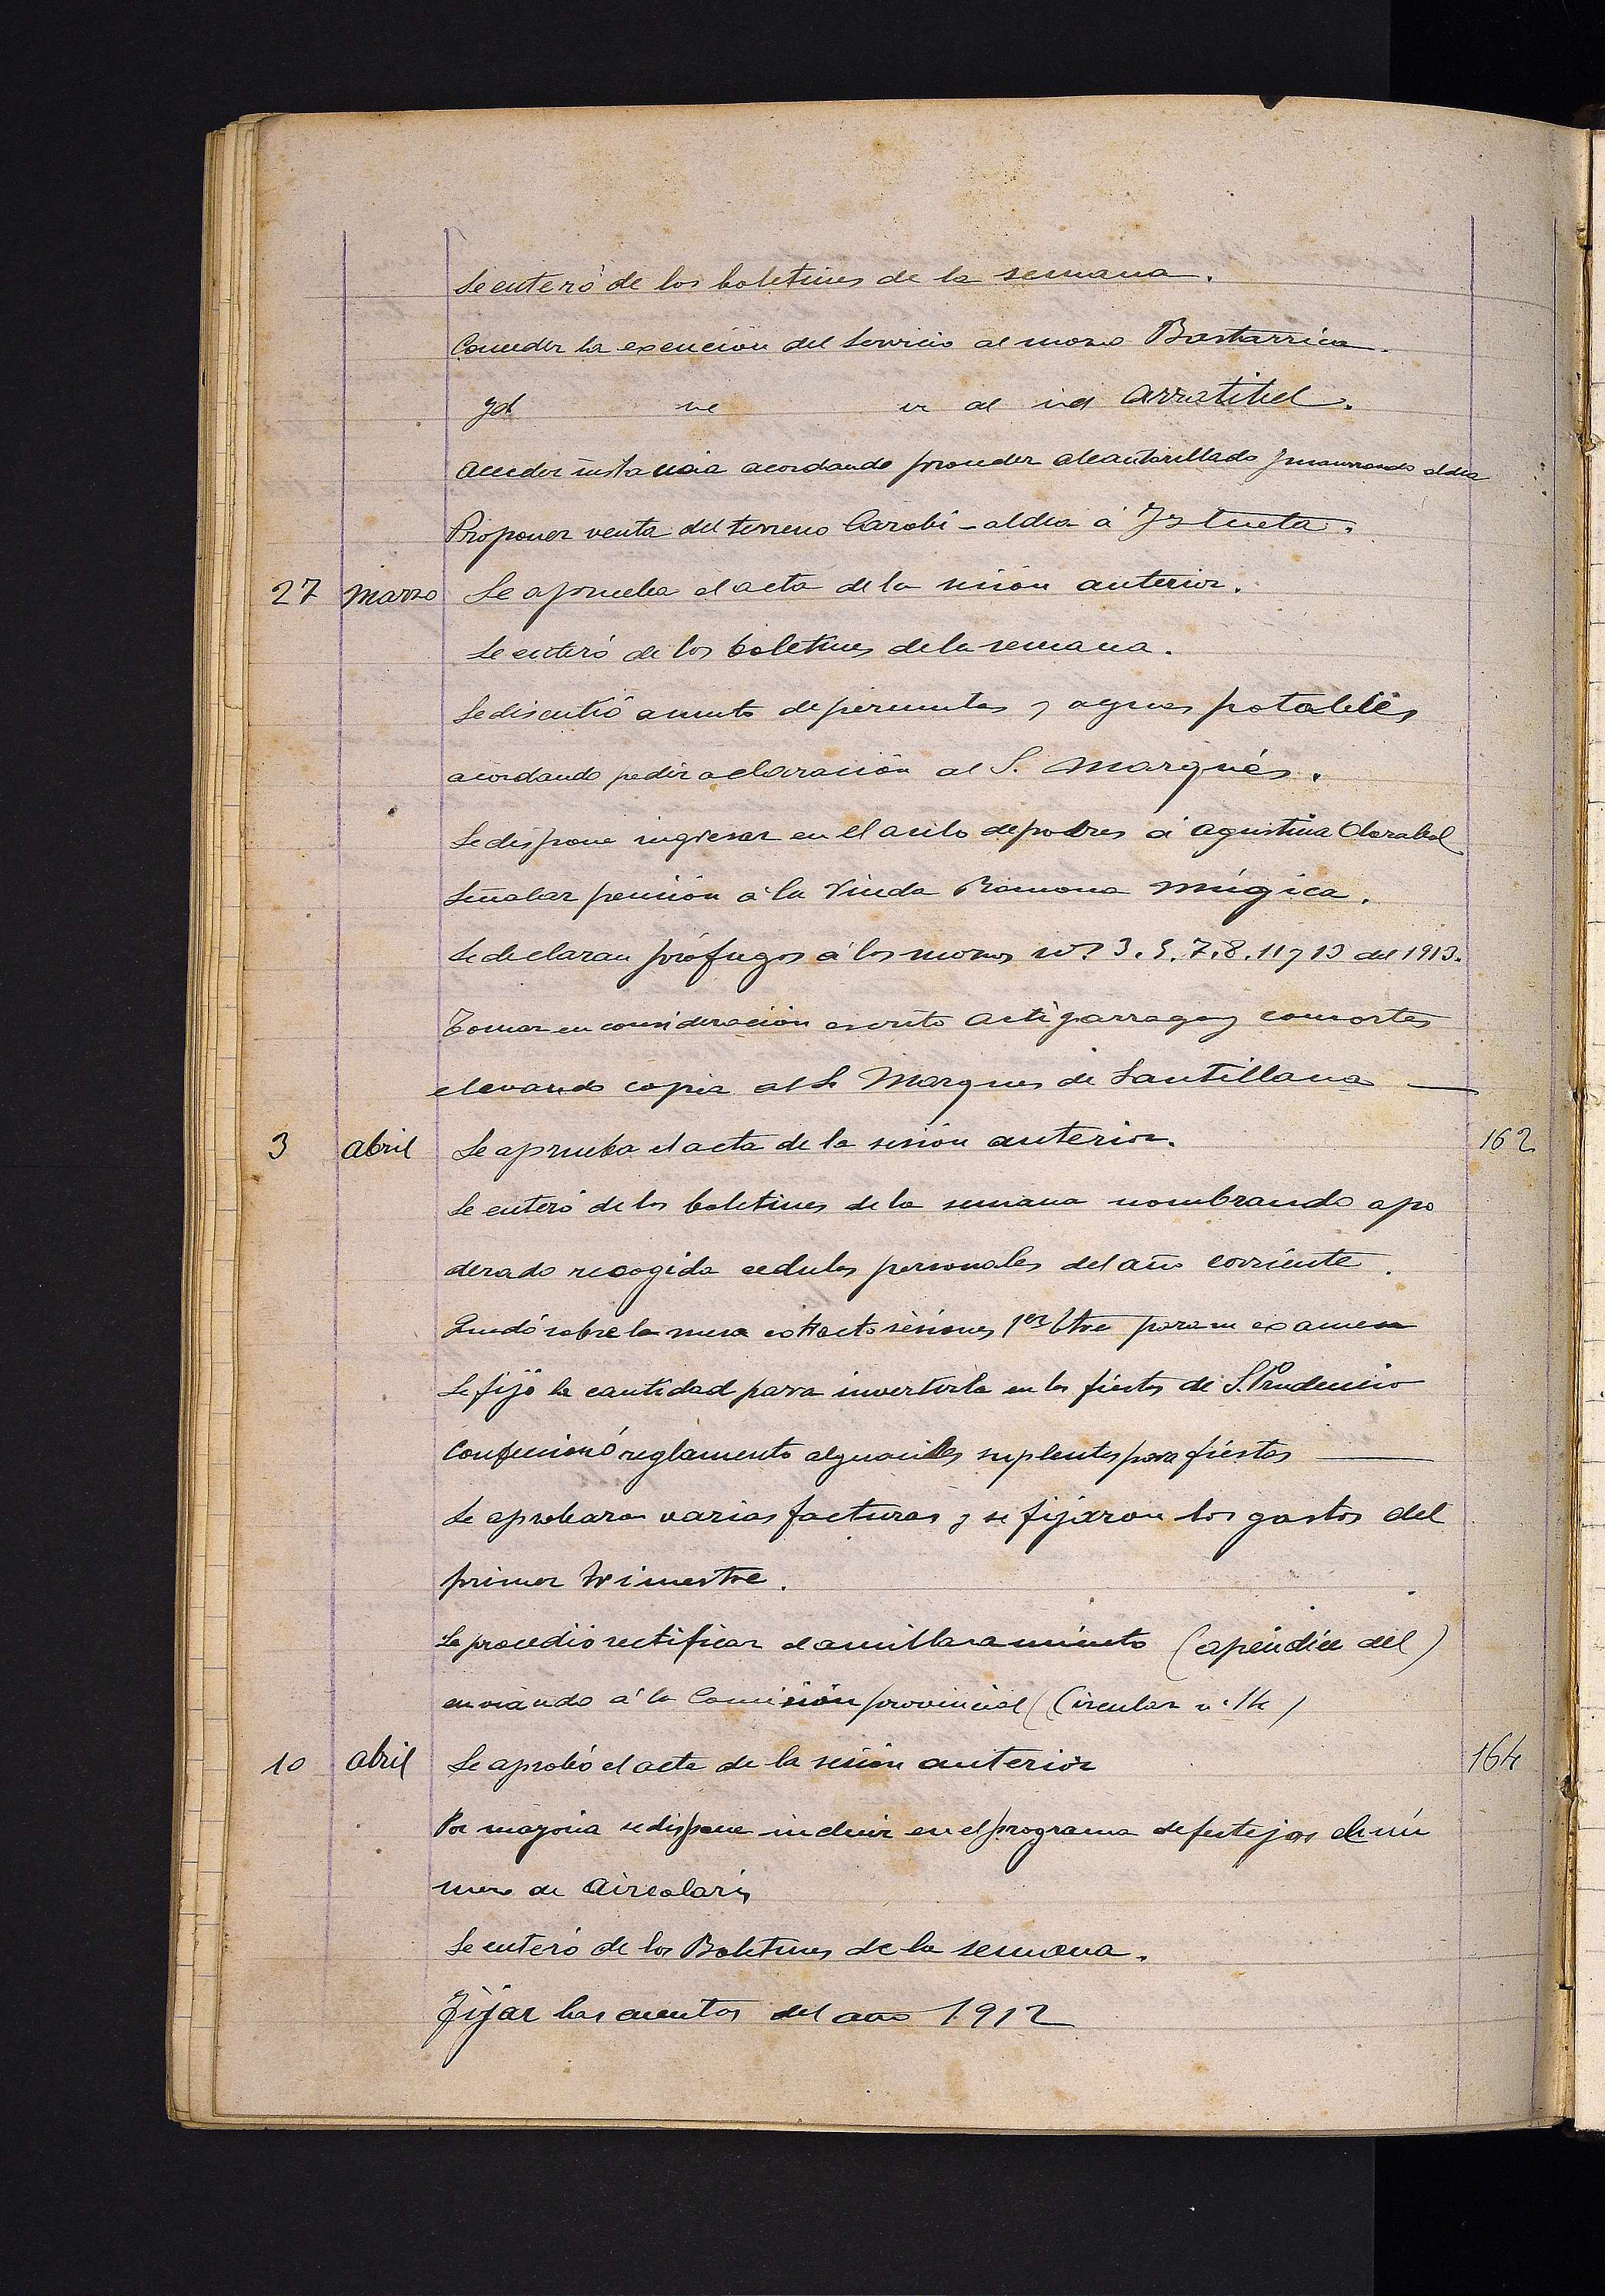 Se enteró de los boletines de la semana.
Conceder la exención del servicio al mozo Bastarrica.
Yd al id Arratibel.
Acceder instancia acordando proceder alcantarillado
Proponer venta del terreno Garobi-aldea á Yztueta.
27 Marzo Se aprueba el acta de la sesión anterior.
Se enteró de los boletines de la semana.
Se discutió asunto de permutas y aguas potables
acordando pedir aclaración al S. Marqués.
Se dispone ingresar en el asilo de pobres á Agustina Olarabal
Señalar pensión á la Viuda Ramona Múgica.
Se declaran prófugos á los mozos nos 3. 5. 7. 8. 11 y 13 del 1913.
Tomar en consideración escrito Artiparraga y consortes
elevando copia al Sr Marques de Santillana —
3 Abril Se aprueba el acta de la sesión anterior. 162
Se enteró de los boletines de la semana nombrando apo
derado recogida cedulas personales del año corriente.
Quedó sobre la mesa extracto sesiones 1er tre para su examen
Se fijó la cantidad para invertirla en las fiestas de S. Prudencio
Confeccionó reglamento alguaciles suplentes para fiestas —
Se aprobaron varias facturas y se fijaron los gastos del
primer trimestre.
Se procedió rectificar el amillaramiento (apéndice del)
enviando á la Comisión provincial (Circular n. 14)
10 Abril Se aprobó el acta de la sesión anterior 164
Por mayoria se dispone incluir en el programa de festejos el nú
mero de Aircolaris
Se enteró de los Boletines de la semana.
Fijar las cuentas del año 1912